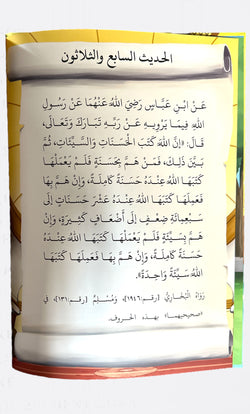 الحديث السابع والثلاثون
عَنْ ابْنِ عَبَّاسٍ رَضِيَ اللهُ عَنْهُمَا عَنْ رَسُولِ
اللهِ فِيمَا يَرْوِيهِ عَنْ رَبِّهِ تَبَارَكَ وَتَعَالَى،
قَالَ: «إِنَّ اللهَ كَتَبَ الْحَسَنَاتِ وَالسَّيِّئَاتِ، ثُمَّ
بَيَّنَ ذَلِكَ، فَمَنْ هَمَّ بِحَسَنَةٍ فَلَمْ يَعْمَلْهَا
كَتَبَهَا اللهُ عِنْدَهُ حَسَنَةً كَامِلَةً، وَإِنْ هَمَّ بِهَا
فَعَمِلَهَا كَتَبَهَا اللهُ عِنْدَهُ عَشْرَ حَسَنَاتٍ إِلَى
سَبْعِمِائَةِ ضِعْفٍ إِلَى أَضْعَافٍ كَثِيرَةٍ، وَإِنْ هَمَّ
بِسَيِّئَةٍ فَلَمْ يَعْمَلْهَا كَتَبَهَا اللهُ عِنْدَهُ
حَسَنَةً كَامِلَةً، وَإِنْ هَمَّ بِهَا فَعَمِلَهَا كَتَبَهَا
اللهُ سَيِّئَةً وَاحِدَةً».
رَوَاهُ الْبُخَارِيُّ [رقم:٦٤٩١]، وَمُسْلِمٌ [رقم:١٣١]، في
«صحيحيهما» بهذه الحروف.